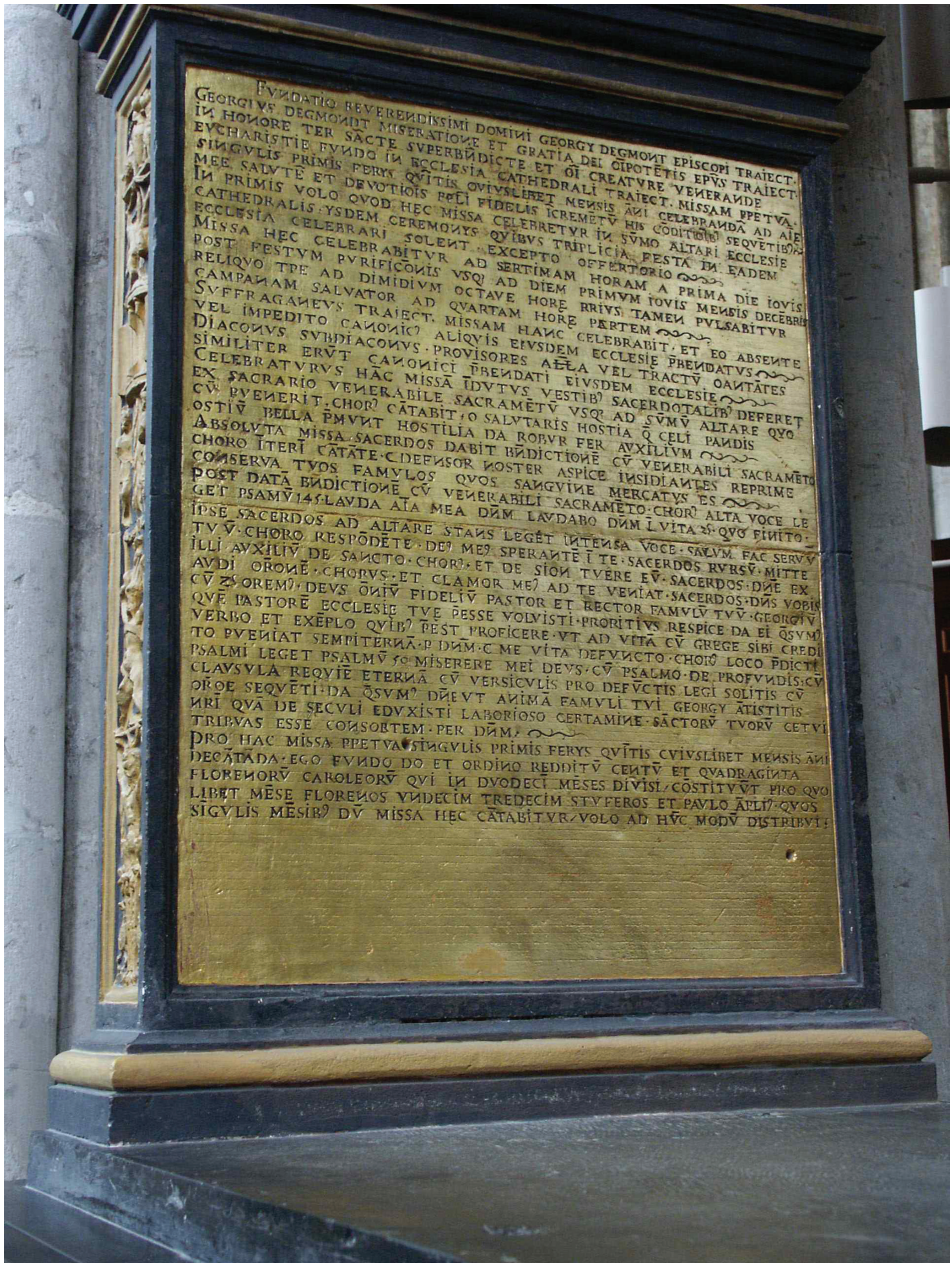 FVNDATIO REVERENDISSIMI DOMINI GEORGY DEGMONT EPISCOPI TRAIECT·
GEORGIVS DEGMONDT MISERATIONE ET GRATIA DEI OĪPOTĒTIS EPVS TRAIECT·
IN HONORE TER SĀCTE SVPERBN̄DICTE ET OĪ CREATVRE VENERANDE
EVCHARISTIE FVNDO IN ECCLESIA CATHEDRALI TRAIECT· MISSAM PPETVĀ·
SINGVLIS PRIMIS FERYS QVĪTIS CVIVSLIBET MENSIS ĀNI CELEBRANDĀ AD AĪE
MEE SALVTĒ ET DEVOTIOĪS FIDELIS ĪCREMĒTV̄ HIS CŌDITIŌIB9 SEQVĒTIB9
IN PRIMIS VOLO QVOD HĘC MISSA CELEBRETVR IN SV̄MO ALTARI ECCLESIE
CATHEDRALIS·YSDEM CEREMONYS QVIBVS TRIPLICIA FESTA IN EADEM
ECCLESIA CELEBRARI SOLENT EXCEPTO OFFERTORIO
MISSA HĘC CELEBRABITVR AD SEPTIMAM HORAM A PRIMA DĪE IOVIS
POST FESTVM PVRIFICŌNIS VSQƷ AD DIEM PRIMVM IOVIS MENSIS DECĒBRIS
RELIQVO TPE AD DIMIDIVM OCTAVE HORE PRIVS TAMEN PVLSABITVR
CAMPANAM SALVATOR AD QVARTAM HORE PARTEM
SVFFRAGANEVS TRAIECT· MISSAM HANC CELEBRABIT·ET EO ABSENTE
VEL IMPEDITO CANONIC9 ALIQVIS EIVSDEM ECCLESIĘ P̄BENDATVS
DIACONVS SVBDIACONVS·PROVISORES VEL TRACTV̄ CANTĀTES
SIMILITER ERV̄T CANONICI P̄BENDATI EIVSDEM ECCLESIE
CELEBRATVRVS HĀC MISSĀ ĪDVTVS VESTIB9 SACERDOTALIB9 DEFERET
EX SACRARIO VENERABILE SACRAMĒTV̄ VSQƷ AD SV̄MV̄ ALTARE QVO
CV̄ PVENERIT·CHOR9 CĀTABIT·O SALVTARIS HOSTIA Q̄ CELI PANDIS
OSTIV̄ BELLA P̄MVNT HOSTILIA DA ROBVR FER AVXILIVM
ABSOLVTA MISSA·SACERDOS DABIT BN̄DICTIONĒ CV̄ VENERABILI SACRAMĒTO
CHORO ĪTERĪ CĀTĀTE·C DEFENSOR NOSTER ASPICE INSIDIANTES REPRIME
CONSERVA TVOS FAMVLOS QVOS SANGVINE MERCATVS ES
POST DATĀ BN̄DICTIONĒ CV̄ VENERABILI SACRAMĒTO·CHOR9 ALTA VOCE LE
GET PSAMV̄ 145·LAVDA AĪA MEA DN̄M LAVDABO DN̄M Ī VITA QVO FINITO·
IPSE SACERDOS AD ALTARE STANS LEGET INTENSA VOCE·SALVM FAC SERVV̄
TVV̄·CHORO RESPŌDĒTE·DE9 ME9 SPERANTĒ Ī TE·SACERDOS RVRSV̄·MITTE
ILLI AVXILIV̄ DE SANCTO·CHOR9·ET DE SION TVERE EV̄·SACERDOS·DN̄E EX
AVDI ORŌNĒ·CHORVS·ET CLAMOR ME9 AD TE VENIAT·SACERDOS·DN̄S VOBIS
CV̄ OREM9·DEVS ŌNIV̄ FIDELIV̄ PASTOR ET RECTOR FAMVLV̄ TVV̄·GEORGIV̄
QVĒ PASTORĒ ECCLESIE TVĘ P̄ESSE VOLVISTI·PROPITIVS RESPICE DA EI Q̄SVM9
VERBO ET EXĒPLO QVIB9 P̄EST PROFICERE·VT AD VITĀ CV̄ GREGE SIBI CREDI
TO PVENIAT SEMPITERNĀ·P DN̄M·C ME VITA DEFVNCTO·CHOR9 LOCO P̄DICTI
PSALMI LEGET PSALMV̄ 50 MISERERE MEI DEVS·CV̄ PSALMO·DE PROFVNDIS·CV̄
CLAVSVLA REQVIĒ ETERNĀ CV̄ VERSICVLIS PRO DEFV̄CTIS LEGI SOLITIS CV̄
ORŌE SEQVĒTI·DA Q̄SVM9 DN̄E VT ANIMĀ FAMVLI TVI GEORGY ĀTISTITIS
NR̄I QVĀ DE SECVLI EDVXISTI LABORIOSO CERTAMINE·SĀCTORV̄ TVORV̄ CETVI
TRIBVAS ESSE CONSORTEM·PER DN̄M
PRO HAC MISSA PPETVA SINGVLIS PRIMIS FERYS QVĪTIS CVIVSLIBET MENSIS ĀNI
DECĀTĀDA·EGO FVNDO DO ET ORDINO REDDITV̄ CENTV̄ ET QVADRAGINTA
FLORENORV̄ CAROLEORV̄ QVI IN DVODECĪ MĒSES DIVISI/CŌSTITVV̄T PRO QVO
LIBET MĒSE FLORENOS VNDECIM TREDECIM STVFEROS ET PAVLO ĀPLI9·QVOS
SĪGVLIS MĒSIB9 DV̄ MISSA HĘC CĀTABITVR/VOLO AD HV̄C MODV̄ DISTRIBVI: